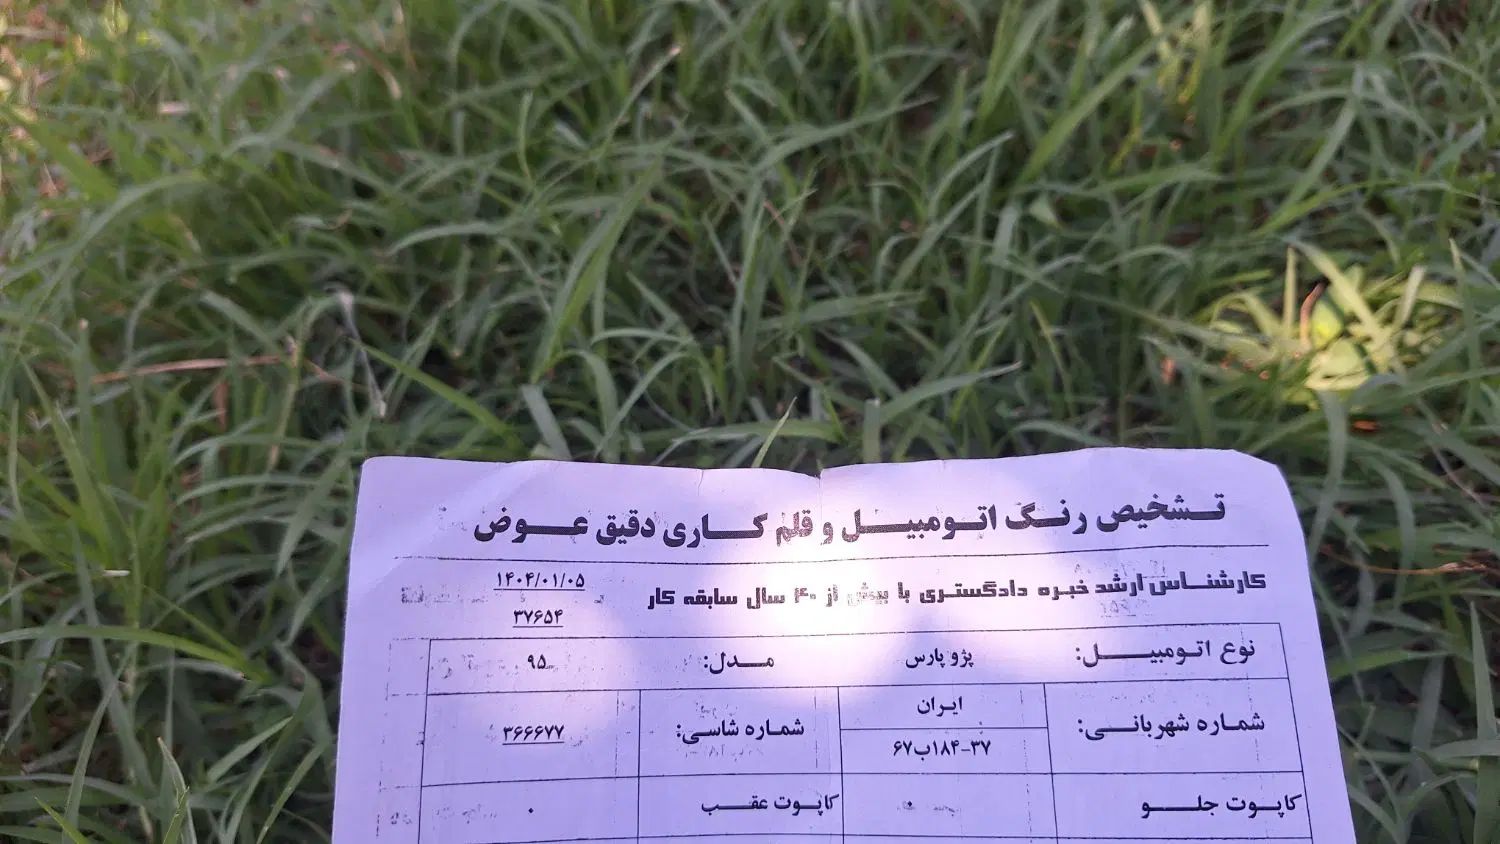 تشخیص رنگ اتومبیل و قلم کاری دقیق عوض
کارشناس ارشد خبره دادگستری با بیش از ۴۰ سال سابقه کار
۱۴۰۴/۰۱/۰۵
۳۷۶۵۴
نوع اتومبیل: پژو پارس مدل: ۹۵
شماره شهربانی: ایران
۳۷-۱۸۴ب۶۷
شماره شاسی: ۳۶۶۶۷۷
کاپوت جلو ۰ کاپوت عقب ۰